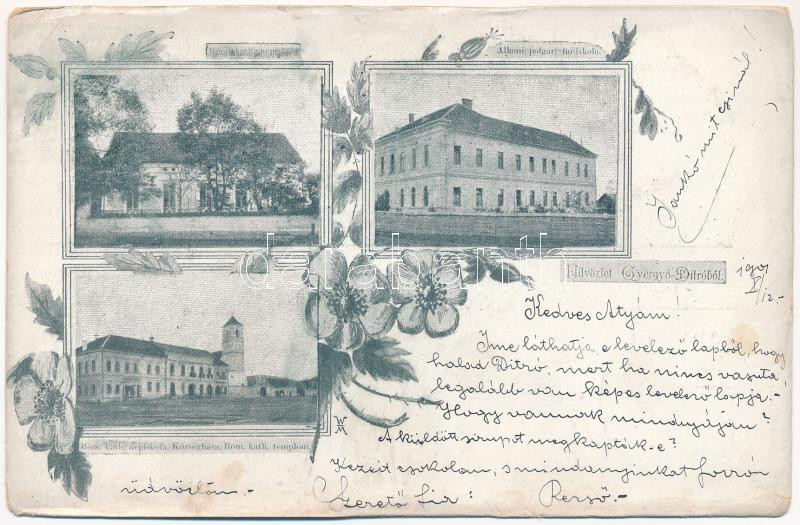 népiskola
Állami polgári fiúiskola.
Jankó mit csinál!
Üdvözlet Gyergyó-Ditróból.
1901
V/12.-
Kedves Atyám.
Ime láthatja e levelező lapból, hogy
halad Ditró, mert ha nincs vasuta
legalább van képes levelező lapja.-
Hogy vannak mindnyájan?
A küldött sirupot megkapták-e?
Kezeit csókolom, s mindannyinkat forrón
üdvözlöm.- Szerető fia: Perső.-
Róm. kath. népiskola, Községháza, Róm. kath. templom.
WM
darabanth